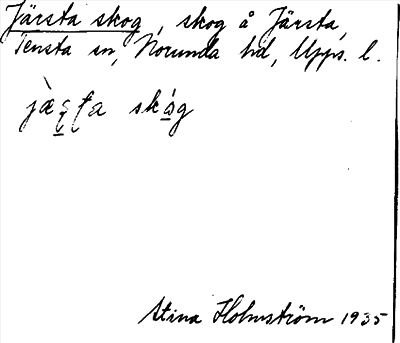 Järsta skog, skog å Järsta,
Tensta sn, Norunda hd, Upps. l.
skóg
Stina Holmström 1935